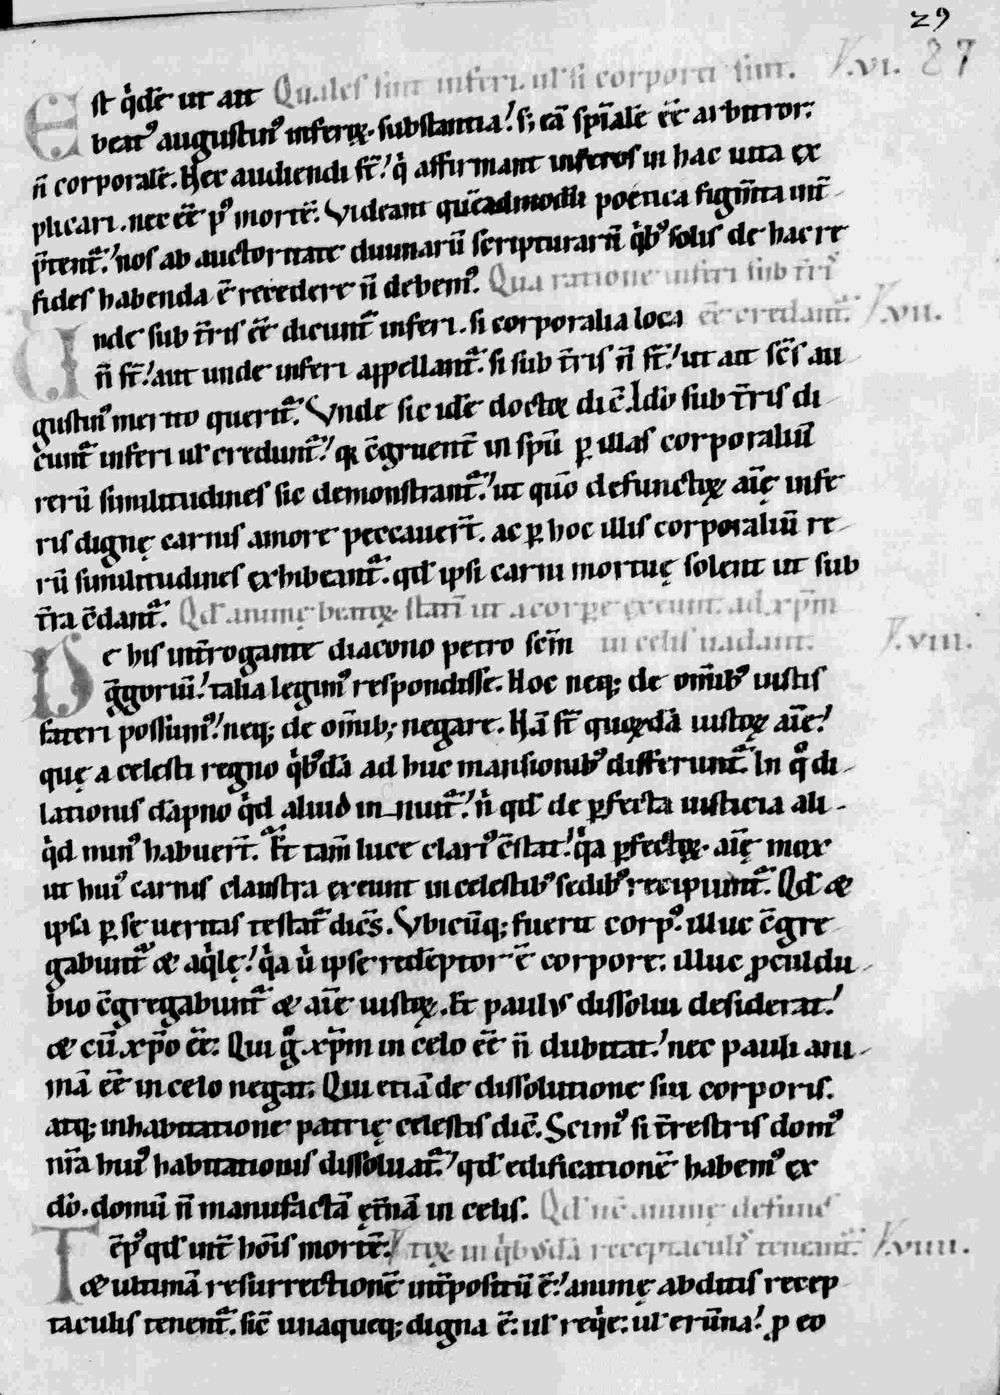 29
Quales sint inferi. ul' si corporei sint. V.vi. 27
Est q̇dē ut ait
beat᾽ augustin᾽ inferoꝝ substantia! sꝫ eā sp̄ialē ēē arbitror:
n̄ corporalē. Nec audiendi st̄! q̇ affirmant inferos in hac uita ex
plicari. nec ēē p᾽ mortē. Videant quēadmodū poetica figm̄ta int̄-
p̄tent᷑! nos ab auctoritate diuinarū scripturarū q̇b᾽ solis de hac re
fides habenda ē recedere n̄ debem᾽. Qua ratione inferi sub t̄ris
Unde sub t̄ris ēē dicunt᷑ inferi. si corporalia loca ēē credant᷑. V.vii.
n̄ st̄! aut unde inferi appellant᷑. si sub t̄ris n̄ st̄! ut ait sc̄s au
gustin᾽ merito querit᷑. Vnde sic idē doctor dic̄. Idō sub t̄ris di-
cunt᷑ inferi ul' credunt᷑! qꝛ c̄gruent᷑ in sp̄u ꝑ illas corporaliū
rerū similitudines sic demonstrant᷑! ut quō defunctoꝝ aīę infe-
ris dignę carnis amore peccauer̄t. ac ꝑ hoc illis corporaliū re-
rū similitudines exhibeant᷑. qd̄ ipsi carni mortuę solent ut sub
t̄ra c̄dant᷑. Qd̄ animę beatoꝝ statī ut a corꝑe exeunt. ad xp̄m
De his int̄rogante diacono petro sc̄m in celis uadant. V.viii.
g̊goriū! talia legim᾽ respondisse. Hoc neqꝫ de om̄ib᾽ iustis
fateri possum᾽! neqꝫ de om̄ibꝫ negare. Nā st̄ quorundā iustoꝝ aīę!
quę a celesti regno q̇b᾽dā ad huc mansionib᾽ differunt᷑. In q̊ di-
lationis dāpno q̇d aliud innuit᷑! n̄ qd̄ de ꝑfecta iusticia ali-
q̇d min᾽ habuer̄t. Et tam̄ luce clari᾽ c̄stat! q̇a ꝑfectoꝝ aīę mox
ut hui᾽ carnis claustra exeunt in celestib᾽ sedib᾽ recipiunt᷑. Qd̄ &
ipsa ꝑ se ueritas testat᷑ dicēs. Vbicūqꝫ fuerit corp᾽. illuc c̄gre
gabunt᷑ & aq̇lę! q̇a u̇ ipse redēptor ē corpore: illuc ꝓculdu-
bio c̄gregabunt᷑ & aīę iustoꝝ. Et paulus dissolui desiderat!
& cū xp̄o ēē. Qui g̊ xp̄m in celo ēē n̄ dubitat! nec pauli ani-
mā ēē in celo negat. Qui etiā de dissolutione sui corporis.
atqꝫ inhabitatione patrię celestis dic̄. Scim᾽ si t̄restris dom᾽
nr̄a hui᾽ habitationis dissoluat᷑! qd̄ edificationē habem᾽ ex
dō. domū n̄ manufactā ęt̄nā in celis. Qd̄ nc̄ animę defunc
Tēp᾽ qd̄ int̄ hoīs mortē! toꝝ in q̇busdā receptaculis tenent᷑. V.viiii.
& ultimā resurrectionē int̄positū ē! animę abditis recep
taculis tenent᷑. sic̄ unaqueqꝫ digna ē: ul' req̇e: ul' erūna! ꝓ eo